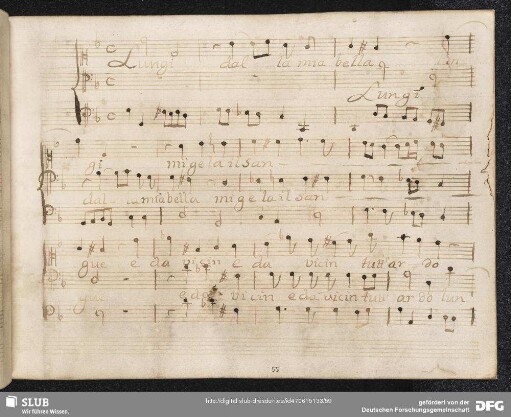 Lungi dal la mia bella
Lungi
gi mi gela il san
dal mia bella mi gela il san
gue e da vicin e da vicin tutt' ar do
gue e da vicin e da vicin tutt' ar do lun
55
SLUB
Wir führen Wissen.
gefördert von der
Deutschen Forschungsgemeinschaft
DFG